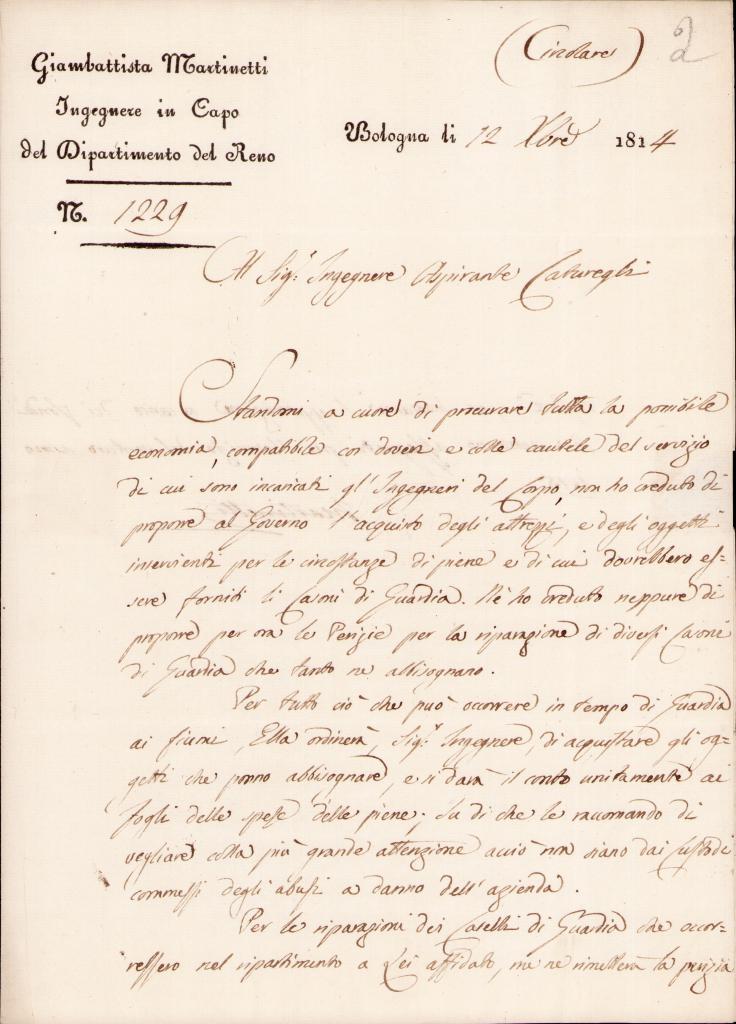 (Circolare)
2
Giambattista Martinetti
Ingegnere in Capo
del Dipartimento del Reno
Bologna li 12 Xbre 1814
N. 1229
Al Sigr. Ingegnere Aspirante Catureglj
Standomi a cuore di procurare tutta la possibile
economia, compatibile coi doveri e colle cautele del servizio
di cui sono incaricati gl'Ingegneri del Corpo, non ho creduto di
proporre al Governo l'acquisto degli attrezzi, e degli oggetti
inservienti per le circostanze di piene e di cui dovrebbero es=
sere forniti li Casoni di Guardia. Nè ho creduto neppure di
proporre per ora le Perizie per la riparazione di diversi Casoni
di Guardia che tanto ne abbisognano.
Per tutto ciò che può occorrere in tempo di Guardia
ai fiumi, Ella ordinerà, Sigr. Ingegnere, di acquistare gli og=
getti che ponno abbisognare, e si darà il conto unitamente ai
fogli delle spese delle piene; Su di che le raccomando di
vegliare colla più grande attenzione acciò non siano dai Custodi
commessi degli abusi a danno dell'azienda.
Per le riparazioni dei Caselli di Guardia che occor=
ressero nel ripartimento a Lei affidato, me ne rimetterà la perizia